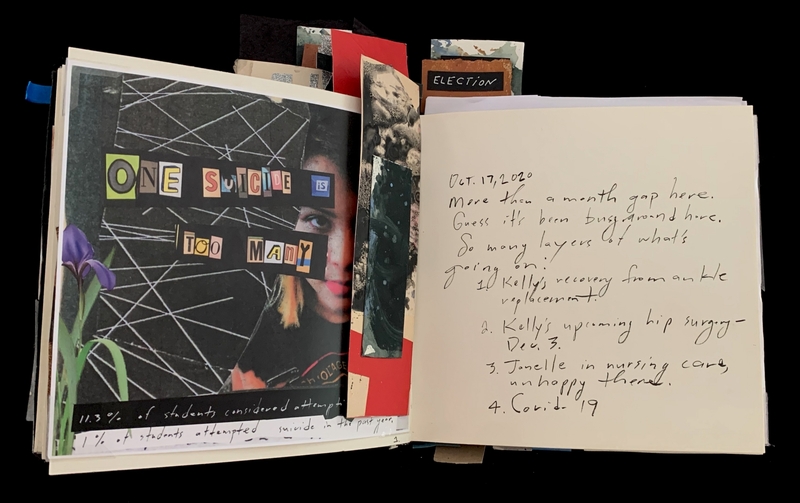 ELECTION
ONE SUICIDE IS
TOO MANY
11.3% of students considered attempti
1% of students attempted suicide in the past year.
1
Oct. 17, 2020
More than a month gap here.
Guess it's been busy around here.
So many layers of what's
going on:
1. Kelly's recovery from ankle
replacement.
2. Kelly's upcoming hip surgery –
Dec. 3.
3. Jonelle in nursing care,
unhappy there.
4. Covid-19